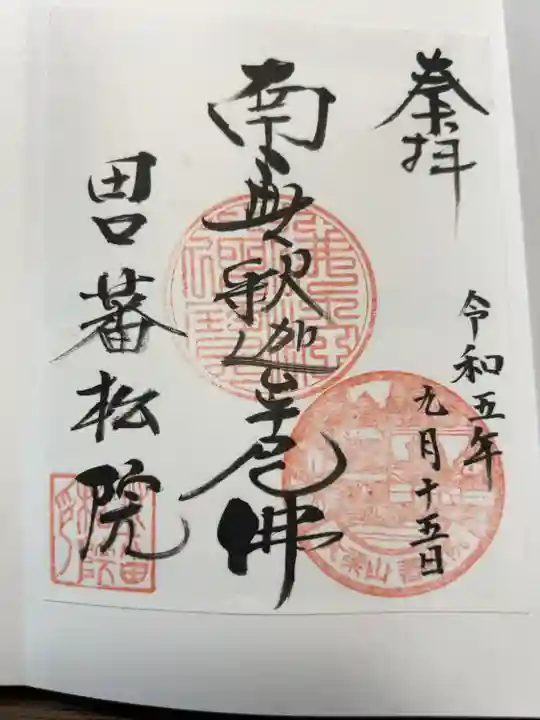 奉拝
令和五年
九月十五日
南無釈迦牟尼佛
田口蕃松院